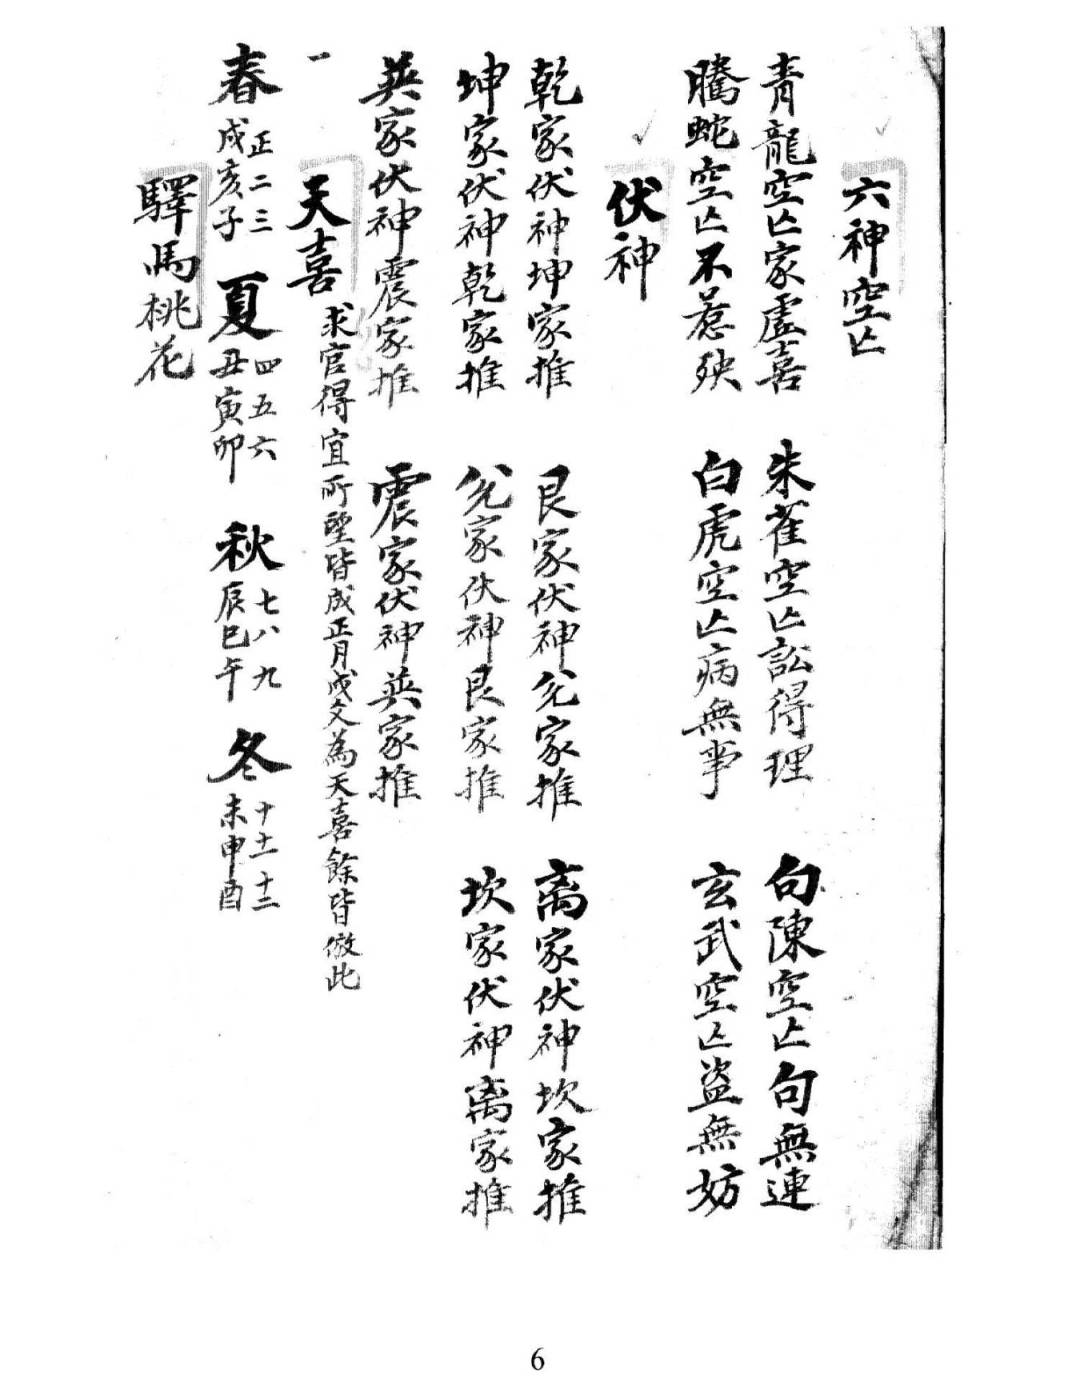 六神空亡
青龍空亡家虛喜　朱雀空亡訟得理　句陳空亡句無連
騰蛇空亡不惹殃　白虎空亡病無事　玄武空亡盜無妨
伏神
乾家伏神坤家推　艮家伏神兊家推　离家伏神坎家推
坤家伏神乾家推　兊家伏神艮家推　坎家伏神离家推
巽家伏神震家推　震家伏神巽家推
一
天喜　求官得宜所望皆成正月戌爻為天喜餘皆倣此
春　正二三　戌亥子　夏　四五六　丑寅卯　秋　七八九　辰巳午　冬　十十一十二　未申酉
驛馬桃花
6